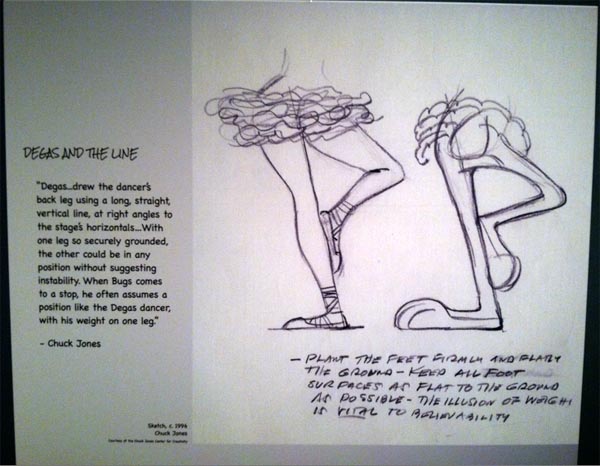 DEGAS AND THE LINE
"Degas...drew the dancer's
back leg using a long, straight,
vertical line, at right angles to
the stage's horizontals...With
one leg so securely grounded,
the other could be in any
position without suggesting
instability. When Bugs comes
to a stop, he often assumes a
position like the Degas dancer,
with his weight on one leg."
- Chuck Jones
Sketch, c. 1996
Chuck Jones
Courtesy of the Chuck Jones Center for Creativity
- PLANT THE FEET FIRMLY AND FLATLY
THE GROUND - KEEP ALL FOOT
SURFACES AS FLAT TO THE GROUND
AS POSSIBLE - THE ILLUSION OF WEIGHT
IS VITAL TO BELIEVABILITY